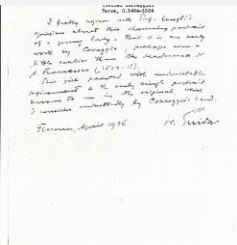 Parma, c.1494-1534
I fully agree with Prof. Longhi's
opinion about this charming portrait
of a young lady. That it is an early
work by Correggio, perhaps even a
little earlier than the Madonna to
S. Francesco (1514-15).
This girl painted with undoubtable
is the only single portrait
known to me in the original, which
I consider undoubtedly by Correggio's hand.
Florence, April 1956
W. Suida